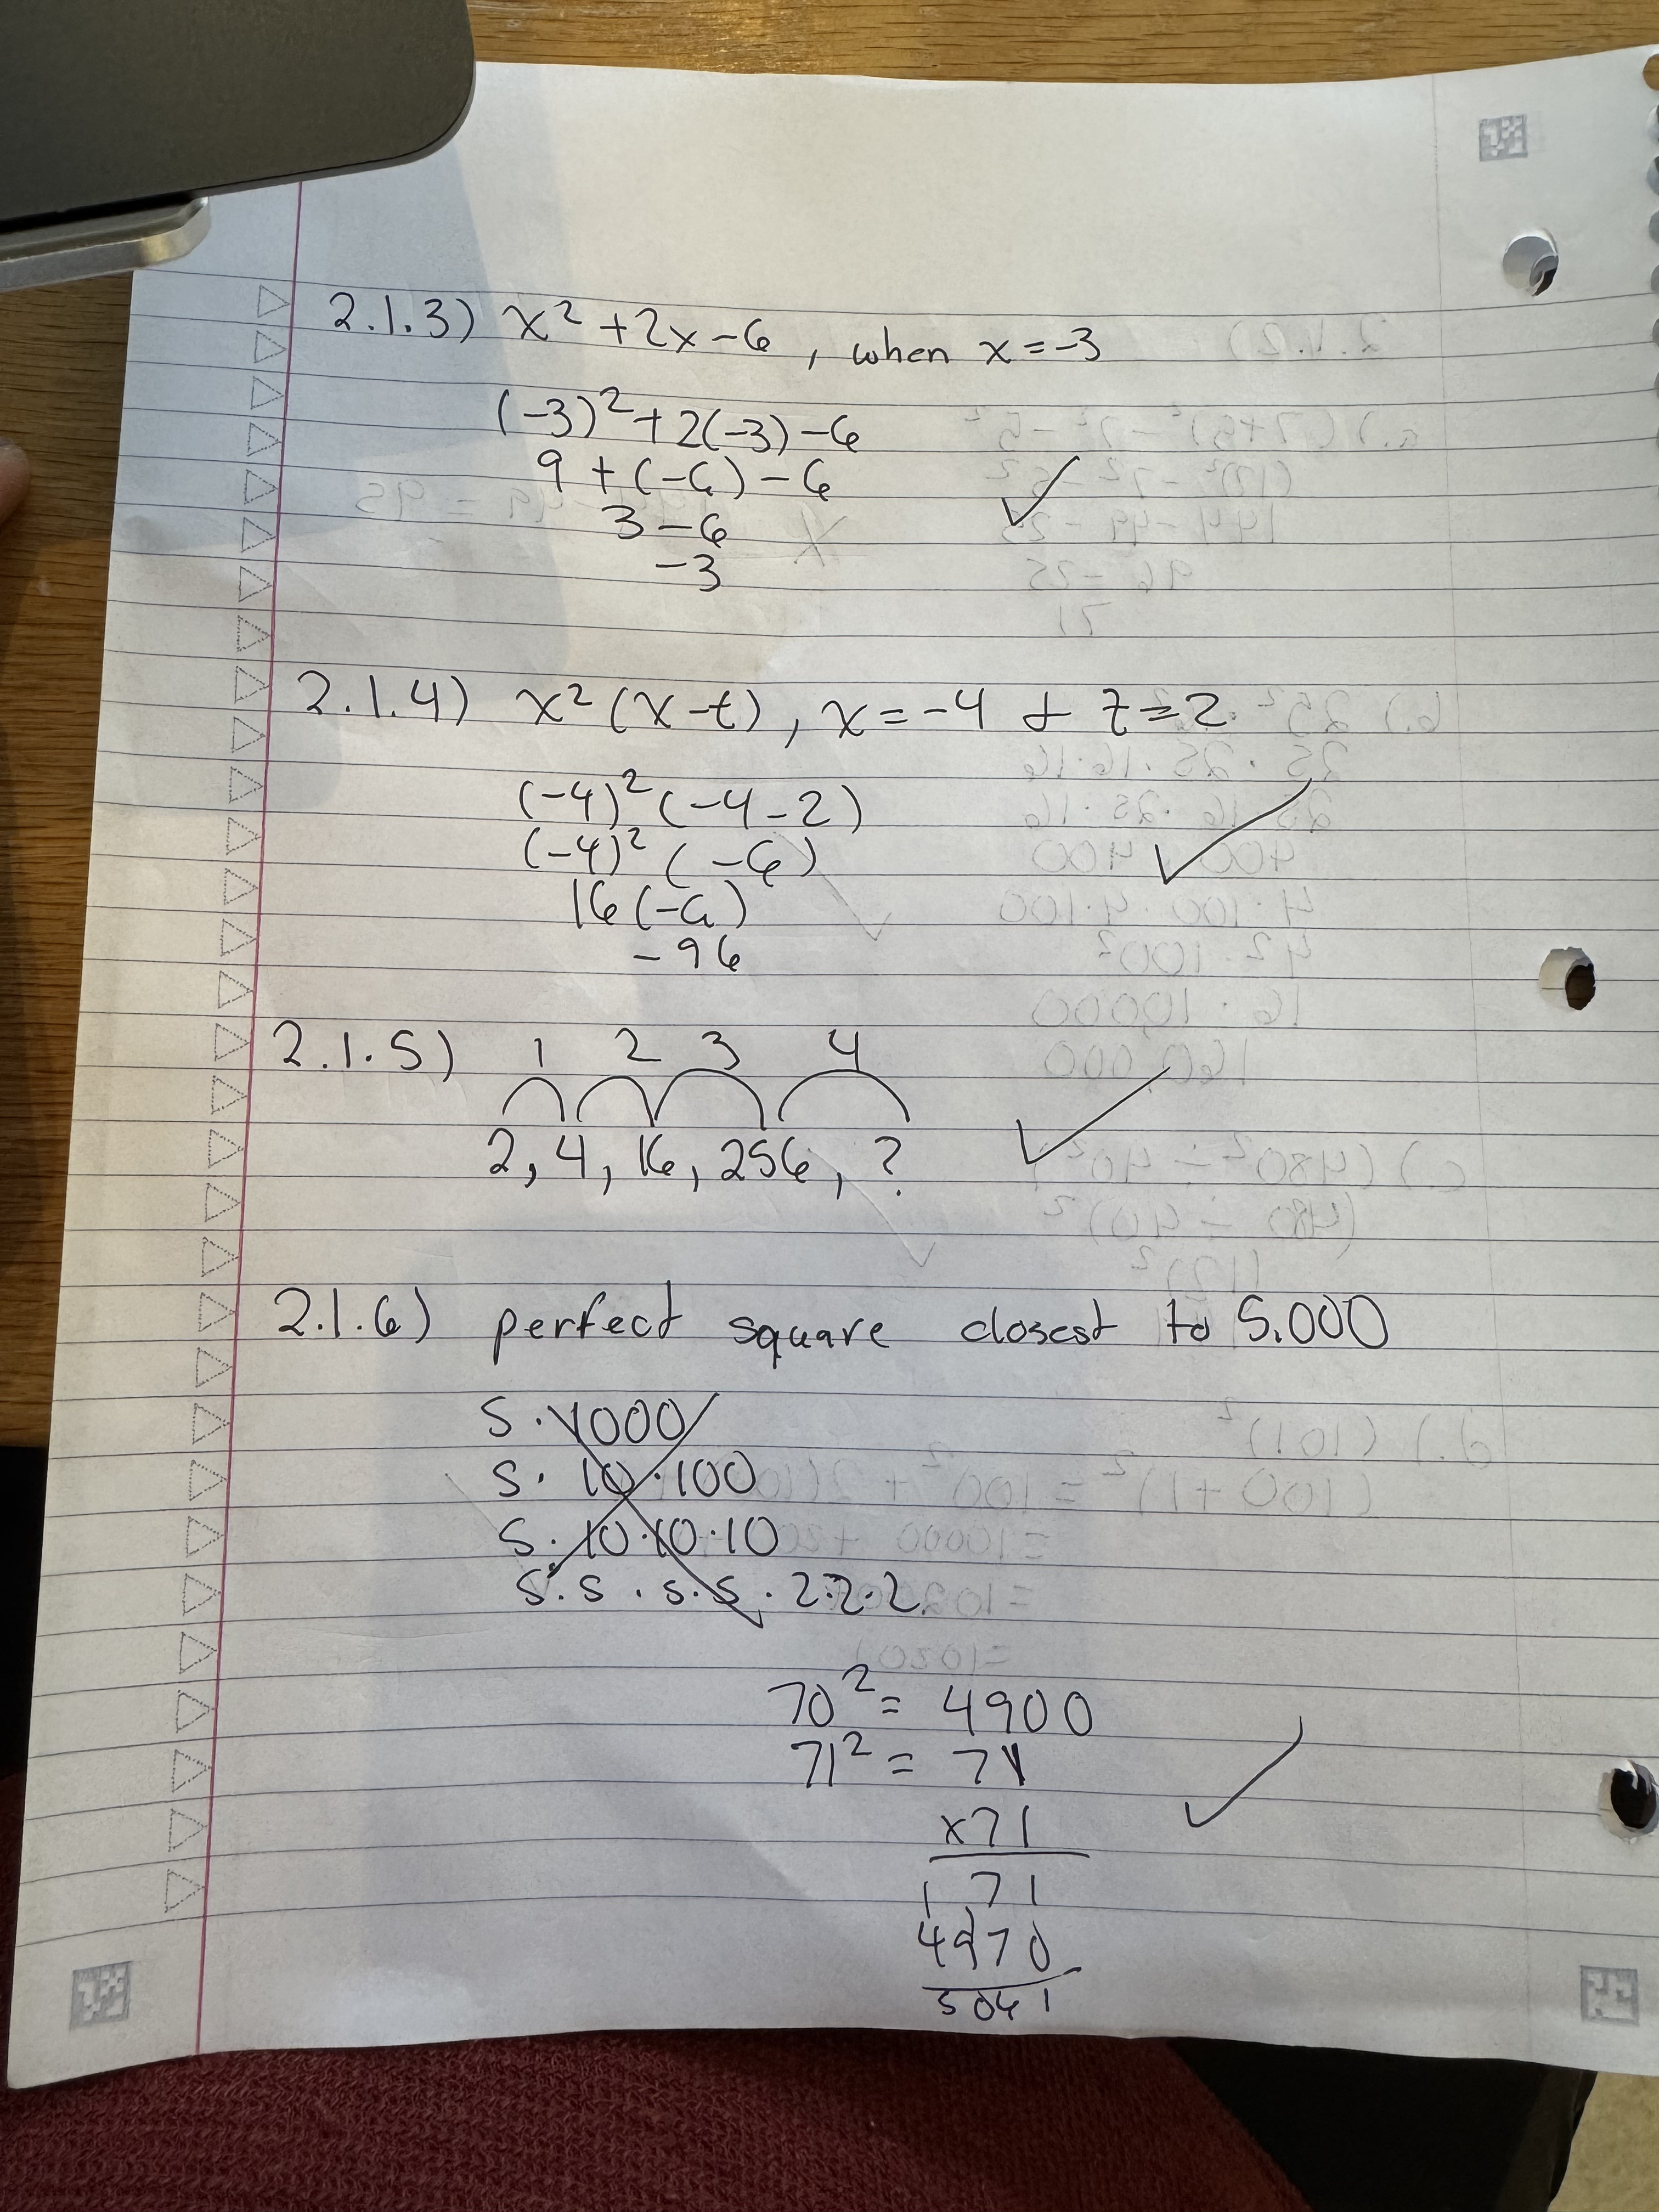 2.1.3) x² + 2x - 6, when x = -3
(-3)² + 2(-3) - 6
9 + (-6) - 6
3 - 6
-3
2.1.4) x² (x-t), x = -4 & t = 2
(-4)² (-4 - 2)
(-4)² (-6)
16 (-6)
-96
2.1.5) 1 2 3 4
2, 4, 16, 256, ?
2.1.6) perfect square closest to 5.000
5 · 1000
5 · 10 · 100
5 · 10 · 10 · 10
5 · 5 · 5 · 5 · 2 · 2 · 2
70² = 4900
71² = 71
x71
1 71
4970
5041